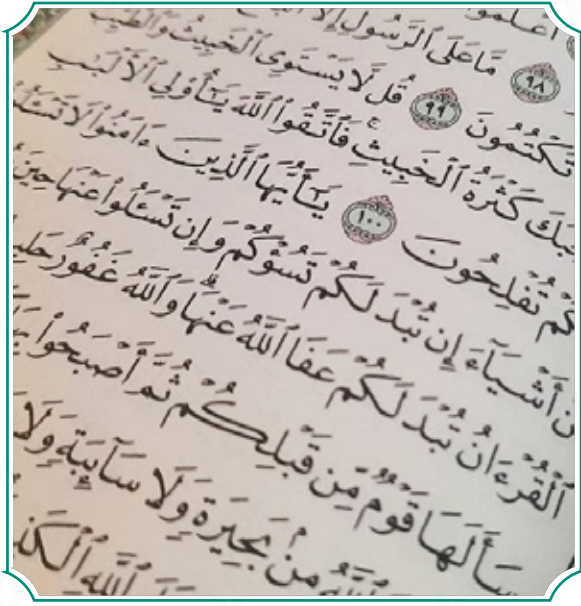 ٱعْلَمُوٓا۟
٩٨ مَّا عَلَى ٱلرَّسُولِ إِلَّا
تَكْتُمُونَ ٩٩ قُل لَّا يَسْتَوِى ٱلْخَبِيثُ وَٱلطَّيِّبُ
جَبَكَ كَثْرَةُ ٱلْخَبِيثِ ۚ فَٱتَّقُوا۟ ٱللَّهَ يَـٰٓأُو۟لِى ٱلْأَلْبَـٰبِ
كُمْ تُفْلِحُونَ ١٠٠ يَـٰٓأَيُّهَا ٱلَّذِينَ ءَامَنُوا۟ لَا تَسْـَٔلُ
نْ أَشْيَآءَ إِن تُبْدَ لَكُمْ تَسُؤْكُمْ وَإِن تَسْـَٔلُوا۟ عَنْهَا حِينَ
ٱلْقُرْءَانُ تُبْدَ لَكُمْ عَفَا ٱللَّهُ عَنْهَا ۗ وَٱللَّهُ غَفُورٌ حَلِي
سَأَلَهَا قَوْمٌ مِّن قَبْلِكُمْ ثُمَّ أَصْبَحُوا۟
ٱللَّهُ مِنۢ بَحِيرَةٍ وَلَا سَآئِبَةٍ وَلَا
ٱللَّهِ ٱلْكَذِ